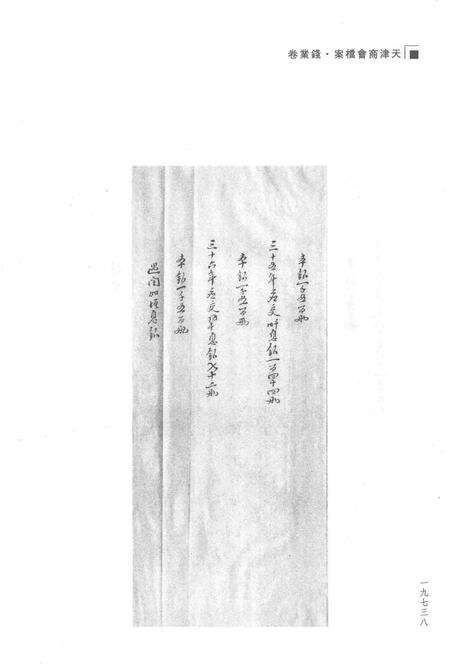 天津商會檔案·錢業卷
本銀一千五百兩
三十五年應交 息銀一百四十四兩
本銀一千五百兩
三十六年應交 息銀 十二兩
本銀一千五百兩
遇閏加增息銀
一九七三八